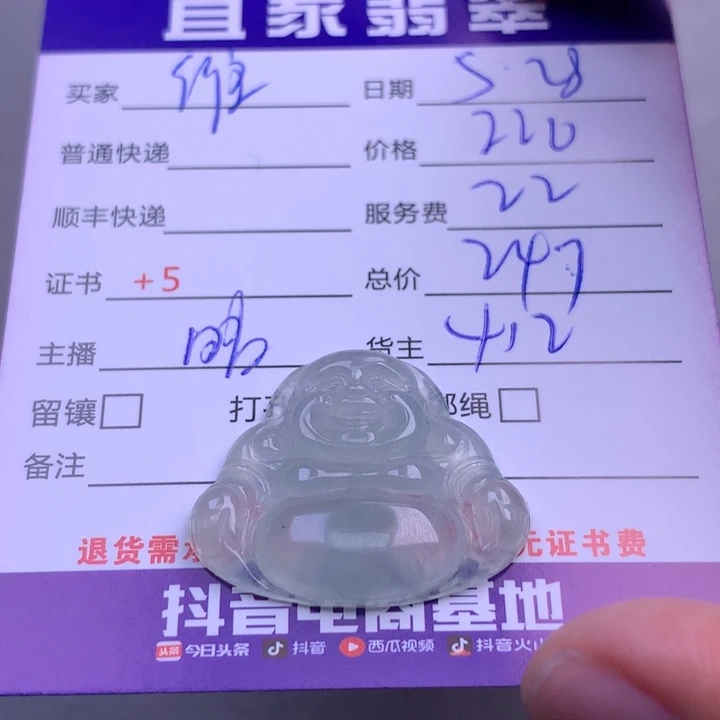 直家翡翠
买家 维 日期 5.28
普通快递 价格 220
顺丰快递 服务费 22
证书 +5 总价 247
主播 货主 412
留镶 打 绳
备注
退货需 元证书费
抖音电商基地
头条 今日头条 抖音 西瓜视频 抖音火山